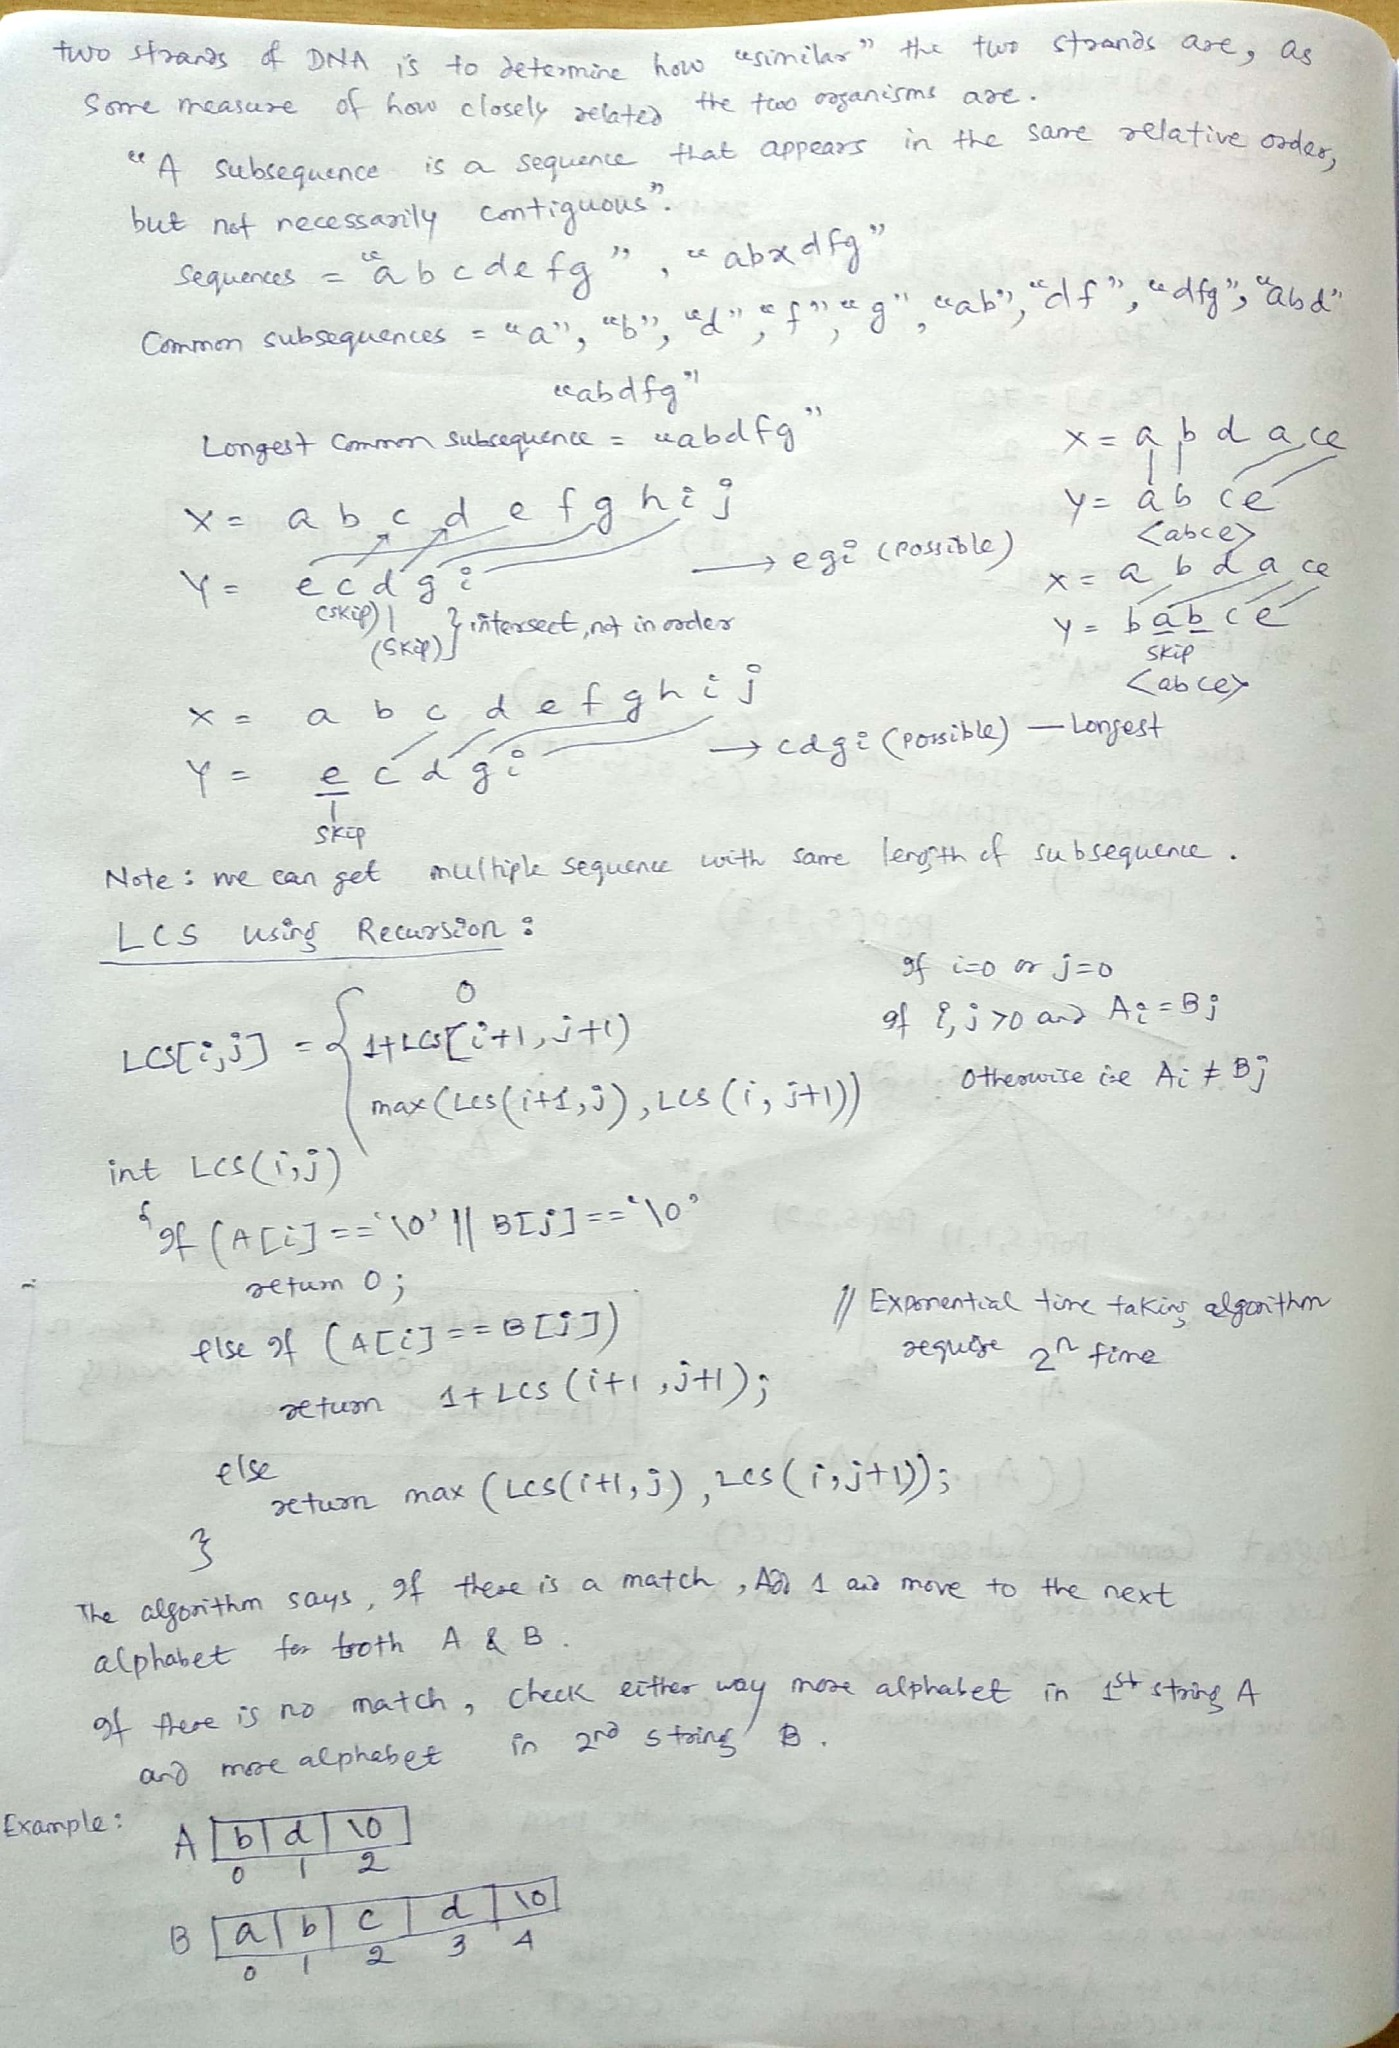 two strands of DNA is to determine how "similar" the two strands are, as
some measure of how closely related the two organisms are.
"A subsequence is a sequence that appears in the same relative order,
but not necessarily contiguous".
Sequences = "abcdefg", "abxdfg"
Common subsequences = "a", "b", "d", "f", "g", "ab", "df", "dfg", "abd"
"abdfg"
Longest Common Subsequence = "abdfg"
X = a b c d e f g h i j
Y = e c d g i
(skip)
(skip) } intersect, not in order
→ egi (possible)
X = a b d a c e
Y = a b c e
<abce>
X = a b d a c e
Y = b a b c e
skip
<abce>
X = a b c d e f g h i j
Y = e c d g i
skip
→ cdgi (possible) — Longest
Note: we can get multiple sequence with same length of subsequence.
LCS using Recursion:
LCS[i,j] = { 0 if i=0 or j=0
1+LCS[i+1, j+1) if i,j>0 and Ai = Bj
max(LCS(i+1,j), LCS(i, j+1)) Otherwise i.e Ai ≠ Bj
int LCS(i,j)
{
if (A[i]=='\0' || B[j]=='\0'
return 0;
else if (A[i]==B[j])
return 1+LCS(i+1,j+1);
// Exponential time taking algorithm
require 2^n time
else
return max(LCS(i+1,j), LCS(i,j+1));
}
The algorithm says, if there is a match, Add 1 and move to the next
alphabet for both A & B.
if there is no match, check either way more alphabet in 1st string A
and more alphabet in 2nd string B.
Example:
A b d \0
0 1 2
B a b c d \0
0 1 2 3 4